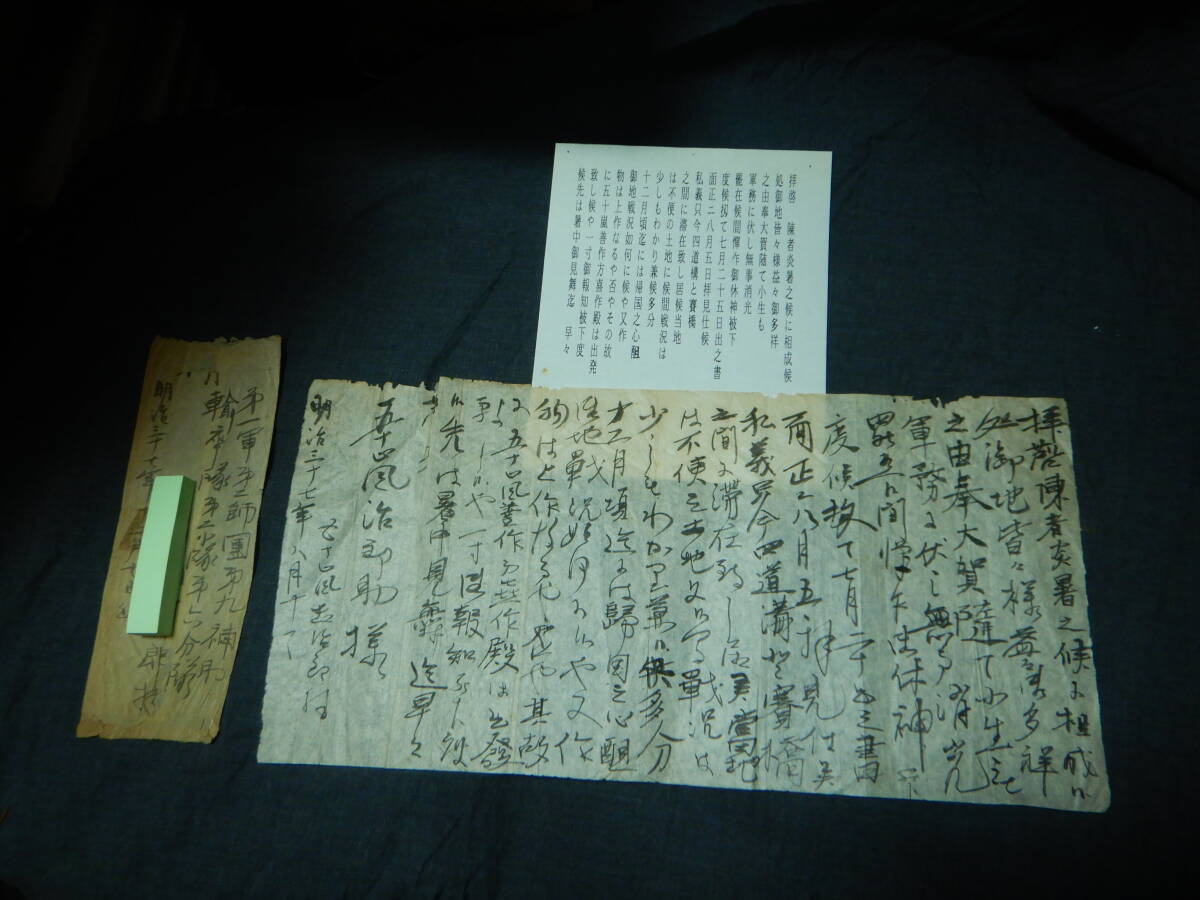 拝啓 陳者炎暑之候に相成候
処御地皆々様益々御多祥
之由奉大賀随て小生も
軍務に伏し無事消光
罷在候間憚乍御休神被下
度候扨て七月二十五日出之書
面正ニ八月五日拝見仕候
私義只今四道構と賽橋
之間に滞在致し居候当地
は不便の土地に候間戦況は
少しもわかり兼候多分
十二月頃迄には帰国之心組
御地戦況如何に候や又作
物は上作なるや否やその故
に五十嵐善作方喜作殿は出発
致し候や一寸御報知被下度
候先は暑中御見舞迄 早々
拝啓陳者炎暑之候に相成候
処御地皆々様益々御多祥
之由奉大賀随て小生も
軍務に伏し無事消光
罷在候間憚乍御休神下
度候扨て七月二十五日之書
面正ニ八月五日拝見仕候
私義只今四道溝と賽橋
之間に滞在致し居候当地
は不便之土地に候間戦況は
少しもわかり兼候多分
十二月頃迄には帰国之心組
御地戦況如何に候や又作
物は上作なるや否や其故
に五十嵐善作方喜作殿は出発
致し候や一寸御報知被下度
候先は暑中見舞迄早々
明治三十七年八月十一日
五十嵐治郎助様
第一軍第二師團第九補助
輸卒隊第二小隊第六分隊
明治三十七年